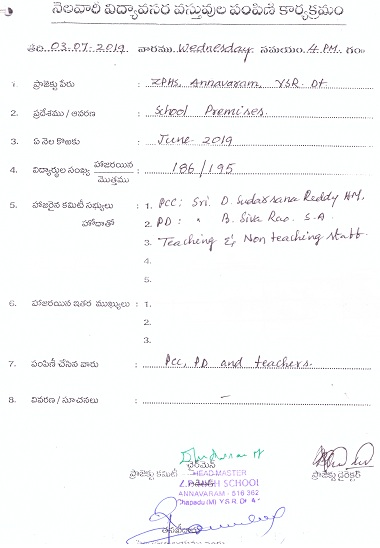 నెలవారీ విద్యావసర వస్తువుల పంపిణీ కార్యక్రమం
తేది. 03.07.2019 వారము Wednesday సమయం 4 P.M. గం
1. ప్రాజెక్టు పేరు : ZPHS, Annavaram, YSR Dt
2. ప్రదేశము / ఆవరణ : School Premises.
3. ఏ నెల కొఱకు : June - 2019
4. విద్యార్థుల సంఖ్య హాజరయిన మొత్తము : 186/195
5. హాజరైన కమిటీ సభ్యులు : 1. PCC: Sri. D. Sudarsana Reddy HM,
హోదాతో 2. PD: " B. Siva Rao. S.A.
3. Teaching & Non teaching staff.
4.
5.
6. హాజరయిన ఇతర ముఖ్యులు : 1.
2.
3.
7. పంపిణీ చేసిన వారు : PCC, PD and teachers.
8. వివరణ / సూచనలు : -
ప్రాజెక్టు కమిటీ ఛైర్మన్ ప్రాజెక్టు డైరెక్టర్
HEAD MASTER
Z.P. HIGH SCHOOL
ANNAVARAM - 516 362
Chapadu (M) Y.S.R. Dt